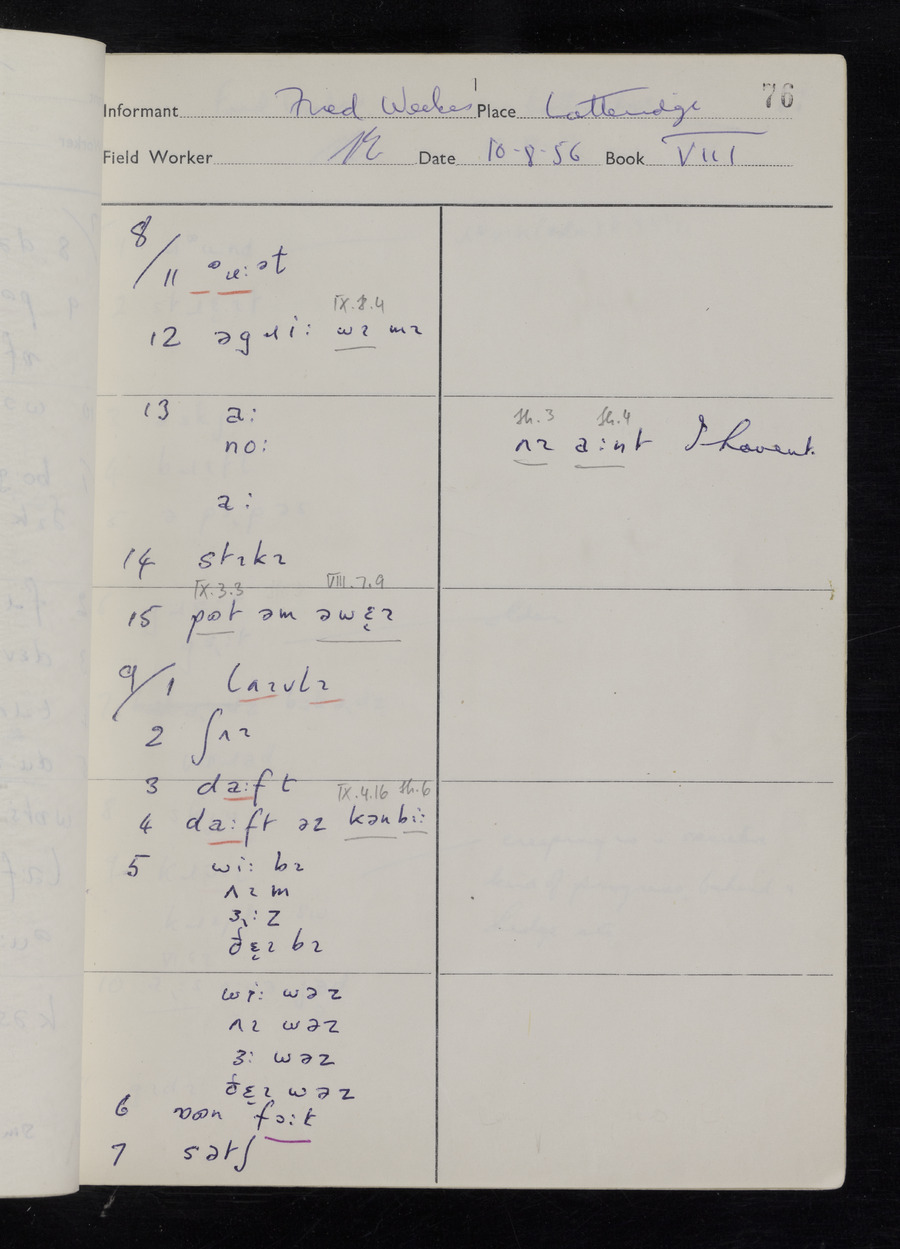 76
Informant Fred Weekes Place Latteridge
Field Worker Date 10-8-56 Book VIII
8/11
IX.2.4
12 əgɹiː wɪ mɪ
13 aː
noː
aː
Sh.3 Sh.4
ʌɪ aːnt I haven't
14 stɪkɪ
IX.3.3 VIII.7.9
15 pɒt əm əwɛ̨ɪ
9/1 lʌɪvlɪ
2 ʃʌɪ
3 daːft
IX.4.16 Sh.6
4 daːft əz kənbiː
5 wiː bɪ
ʌɪ m
ɜ˞ː z
ðɛ̨ɪ bɪ
wiː wəz
ʌɪ wəz
ɜː wəz
ðɛ̨ɪ wəz
6 fɔːt
7 sətʃ